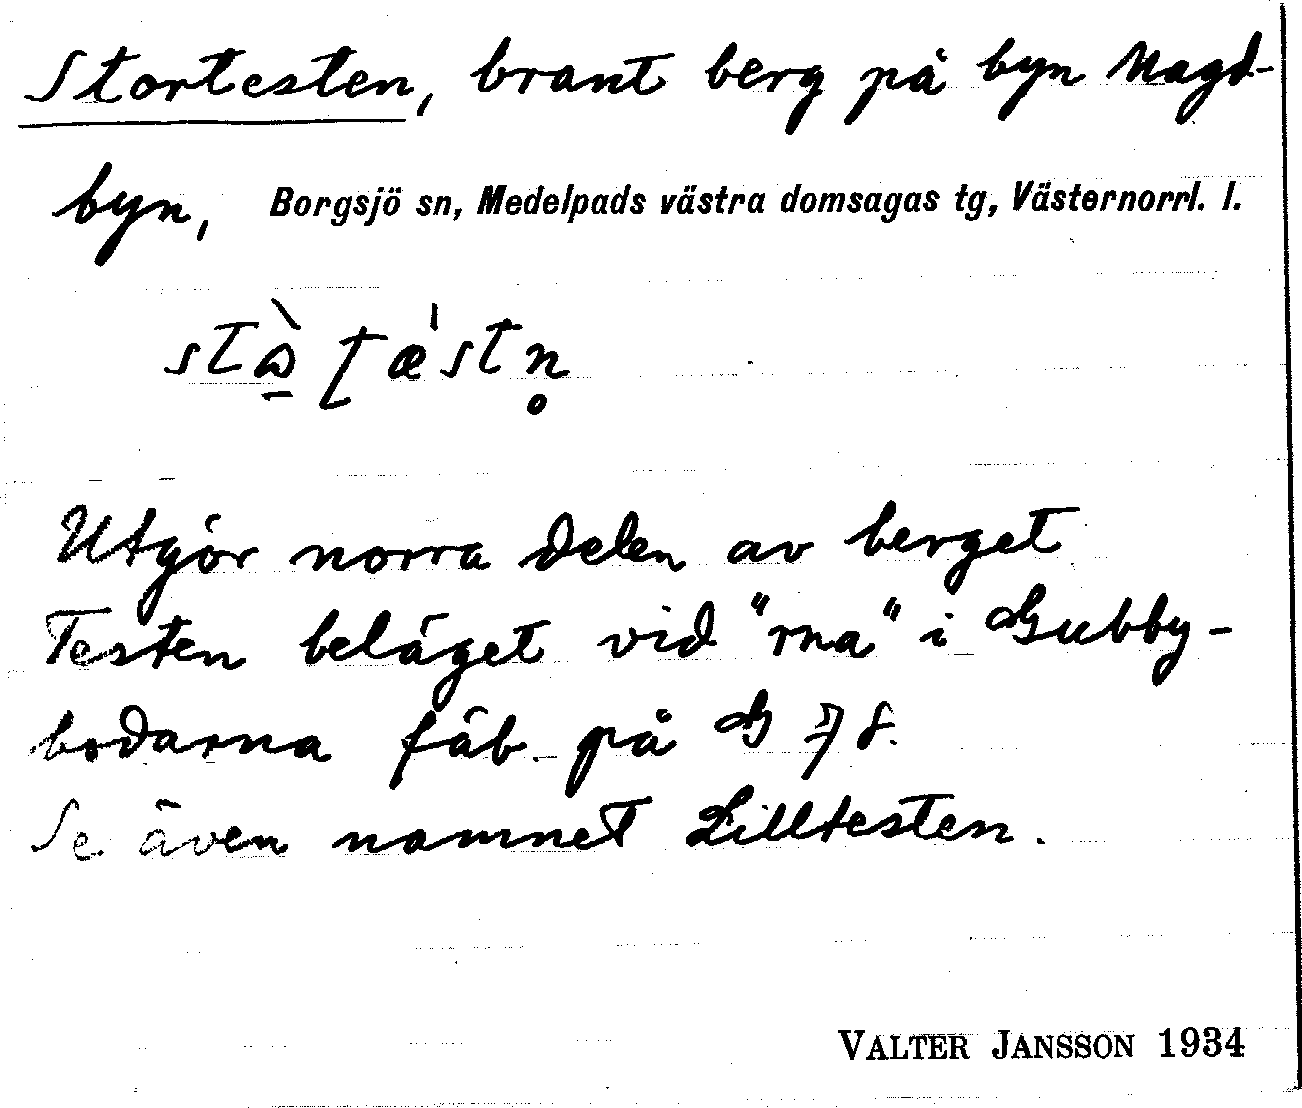 Stortesten, brant berg på byn Nagd-
byn, Borgsjö sn, Medelpads västra domsagas tg, Västernorrl. l.
Utgör norra delen av berget
Testen beläget vid "rna" i Gubby-
bodarna fäb på G 7 8.
Se även namnet Lilltesten.
VALTER JANSSON 1934